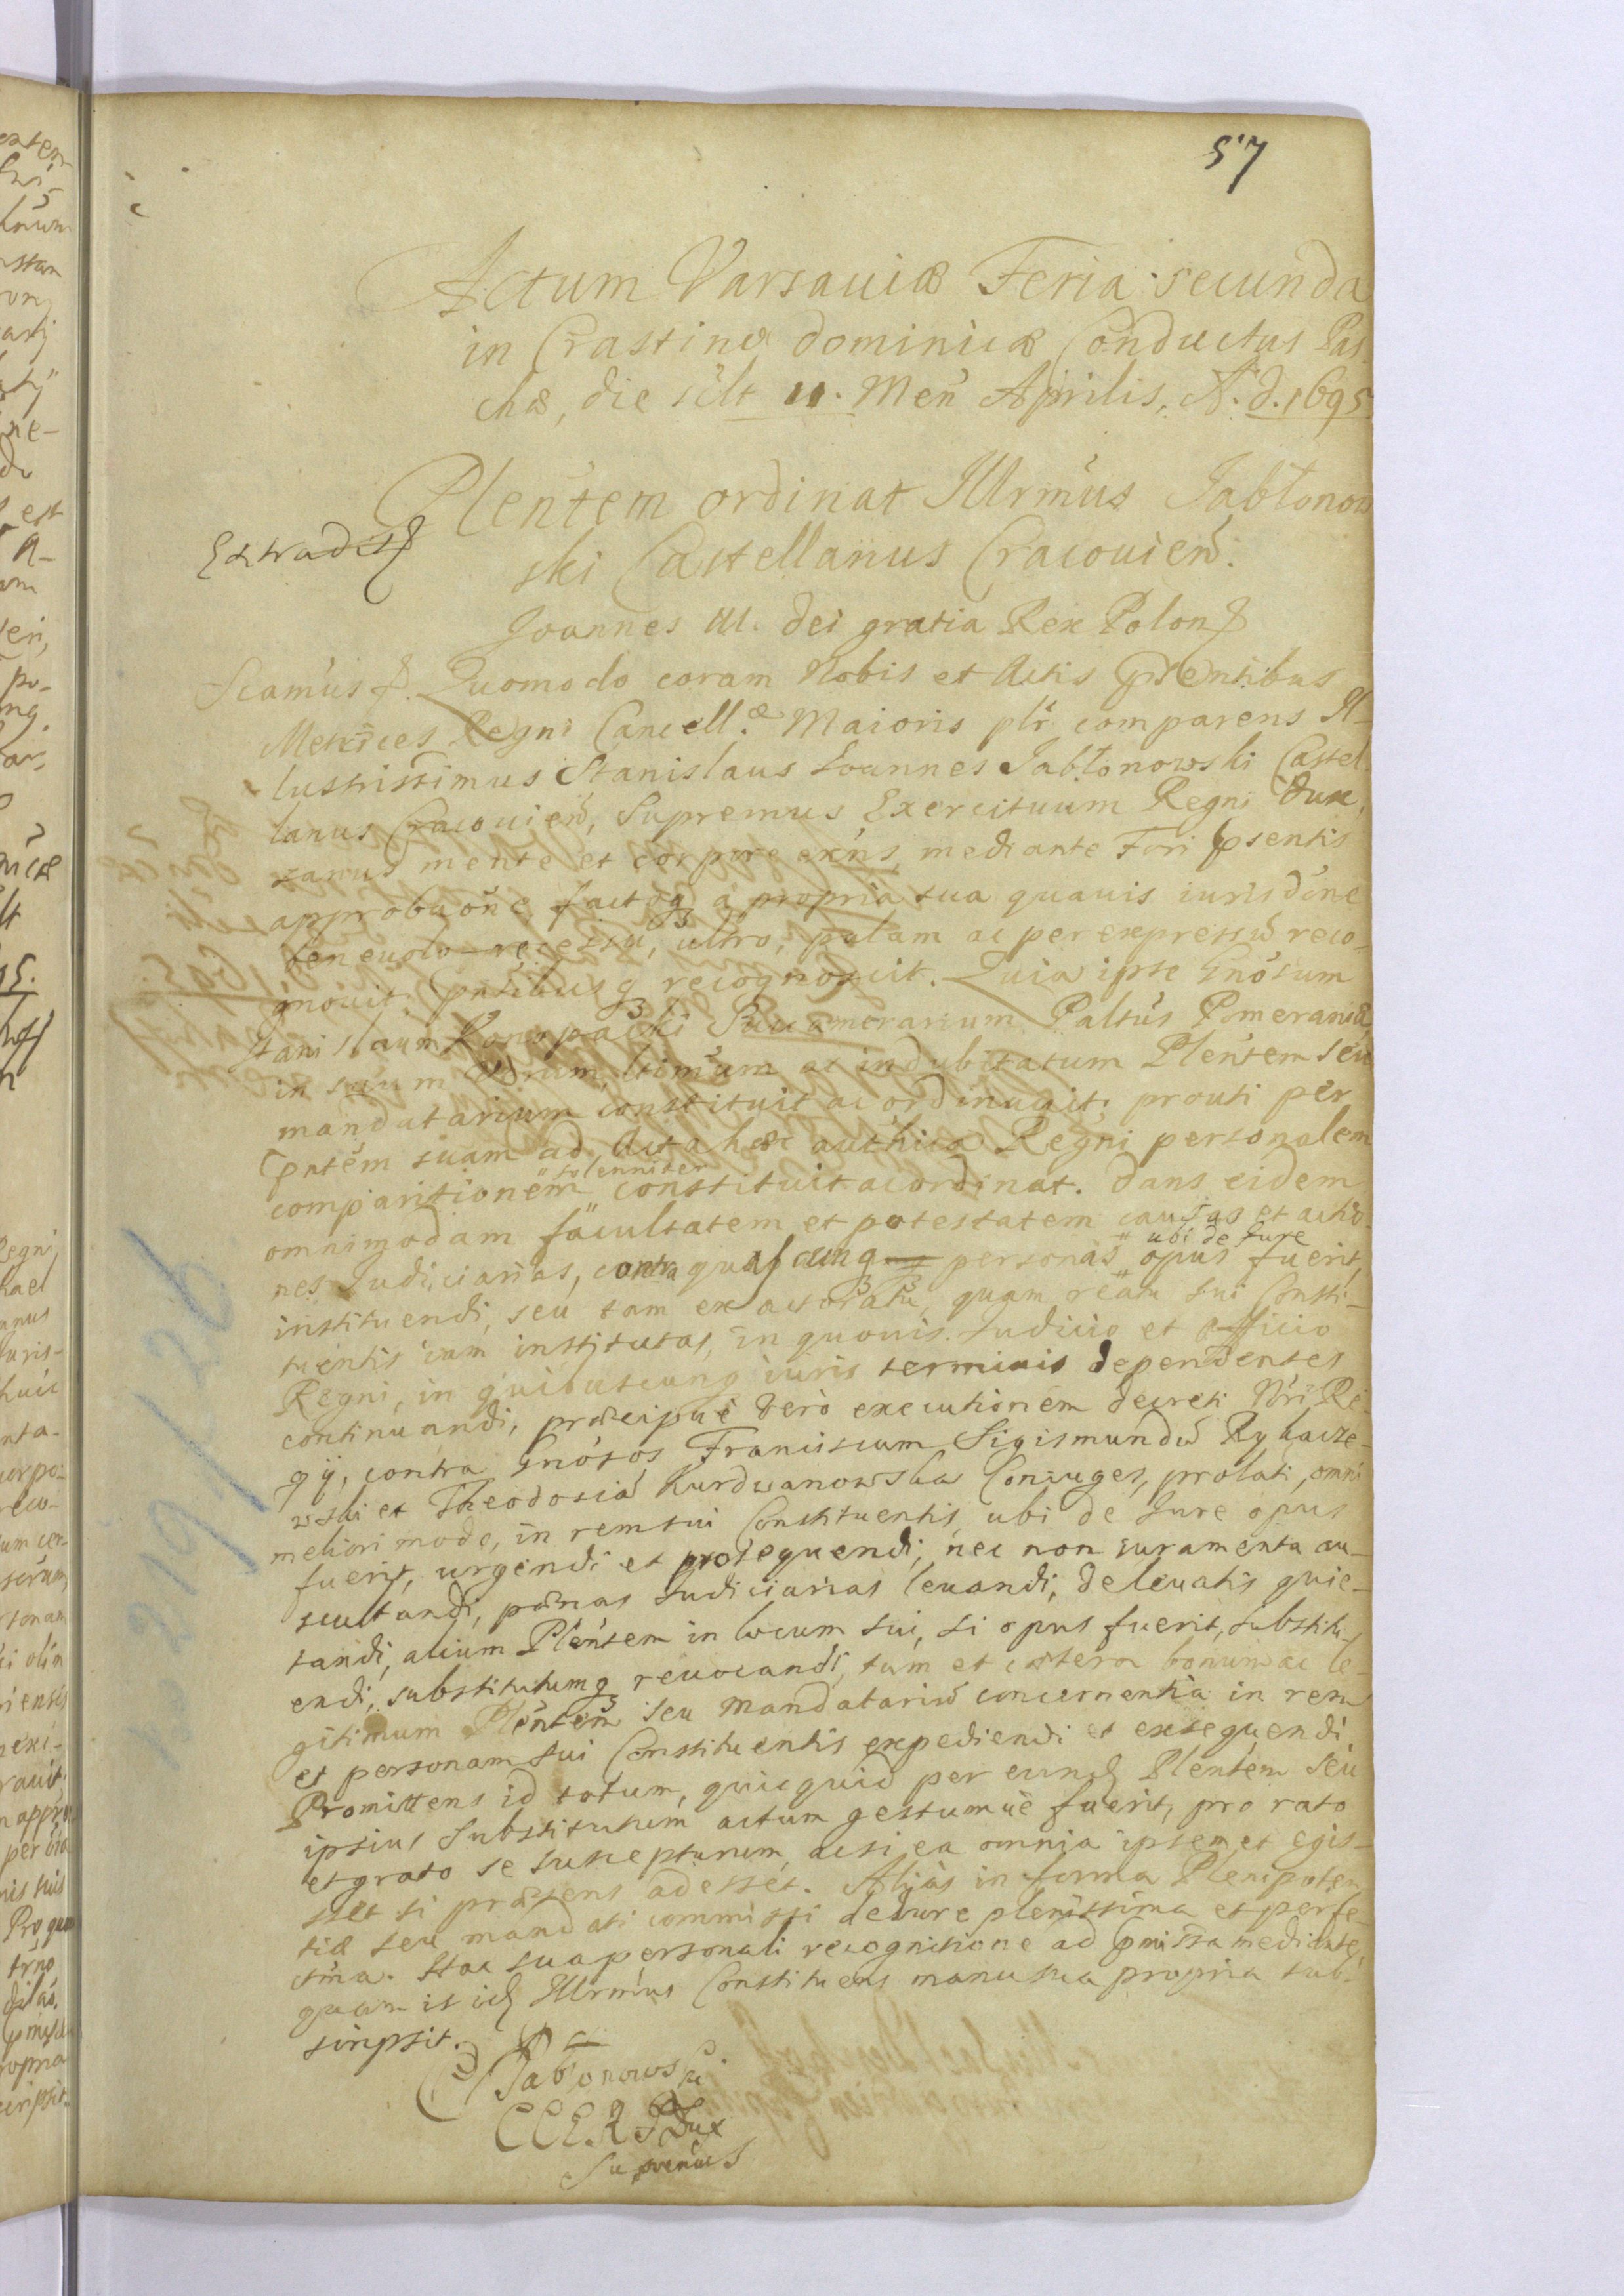 57
Actum Varsaviæ Feria secunda
in Crastino dominicæ Conductus Pas
chæ, die sclt 11. Men Aprilis, A. d. 1695
Plentem ordinat Illrmus Jabłonow
ski Castellanus Cracovien.
Extradit
Joannes III. Dei gratia Rex Polon
Quomodo coram Nobis et Actis pntibus
Metrices Regni Cancell.æ Maioris plr comparens Il-
lustrissimus Stanislaus Joannes Jabłonowski Castel
lanus Cracovien, Supremus Exercituum Regni Dux,
sanus mente et corpore exns, mediante Fori psentis
approbaone, factoq a propria sua quavis iurisdone
benevolo recessu, ultro, palam ac per expressu reco-
gnovit, pntibusq recognoscit. Quia ipse Gnosum
Stanislaum Konopacki Succamerarium Paltus Pomeraniæ
in suum verum, ltimum ac indubitatum Plentem seu
mandatarium constituit ac ordinavit; prouti per
pntem suam ad Acta hæc authica Regni personalem
comparitionem solenniter constituit ac ordinat. Dans eidem
omnimodam facultatem et potestatem causas et actio-
nes Judiciarias, contra quascunq personas ubi de Jure opus fuerit,
instituendi, seu tam ex actoratu, quam reatu sui Consti-
tuentis iam institutas, in quovis Judicio et Officio
Regni, in quibuscunq iuris terminis dependentes
continuandi, præcipue vero executionem decreti Nri Re-
gij, contra Gnosos Franciscum Sigismundu Rybacze-
wski et Theodosia Kurdwanowska Coniuges, prolati, omni
meliori modo, in rem sui Constituentis, ubi de Jure opus
fuerit, urgendi et prosequendi, nec non iuramenta au-
scultandi, pænas Judiciarias levandi, de levatis quie-
tandi, alium Plentem in locum sui, si opus fuerit, substitu-
endi, substitutumq revocandi, tum et cætera bonum ac le-
gitimum Plentem seu Mandatariu concernentia in rem
et personam sui Constituentis expediendi et exsequendi
Promittens id totum, quicquid per eund Plentem seu
ipsius Substitutum actum gestumve fuerit, pro rato
et grato se suscepturum, acsi ea omnia ipsemet egis-
set si præsens adesset. Alias in forma Plenipoten
tiæ seu mandati commissi de iure plenissima et perfe-
ctma. Hac sua personali recognitione ad pmissa mediante,
quam is id Illrmus Constituens manu sua propria sub-
scripsit.
Jabłonowski
CCERPDux
Supremus